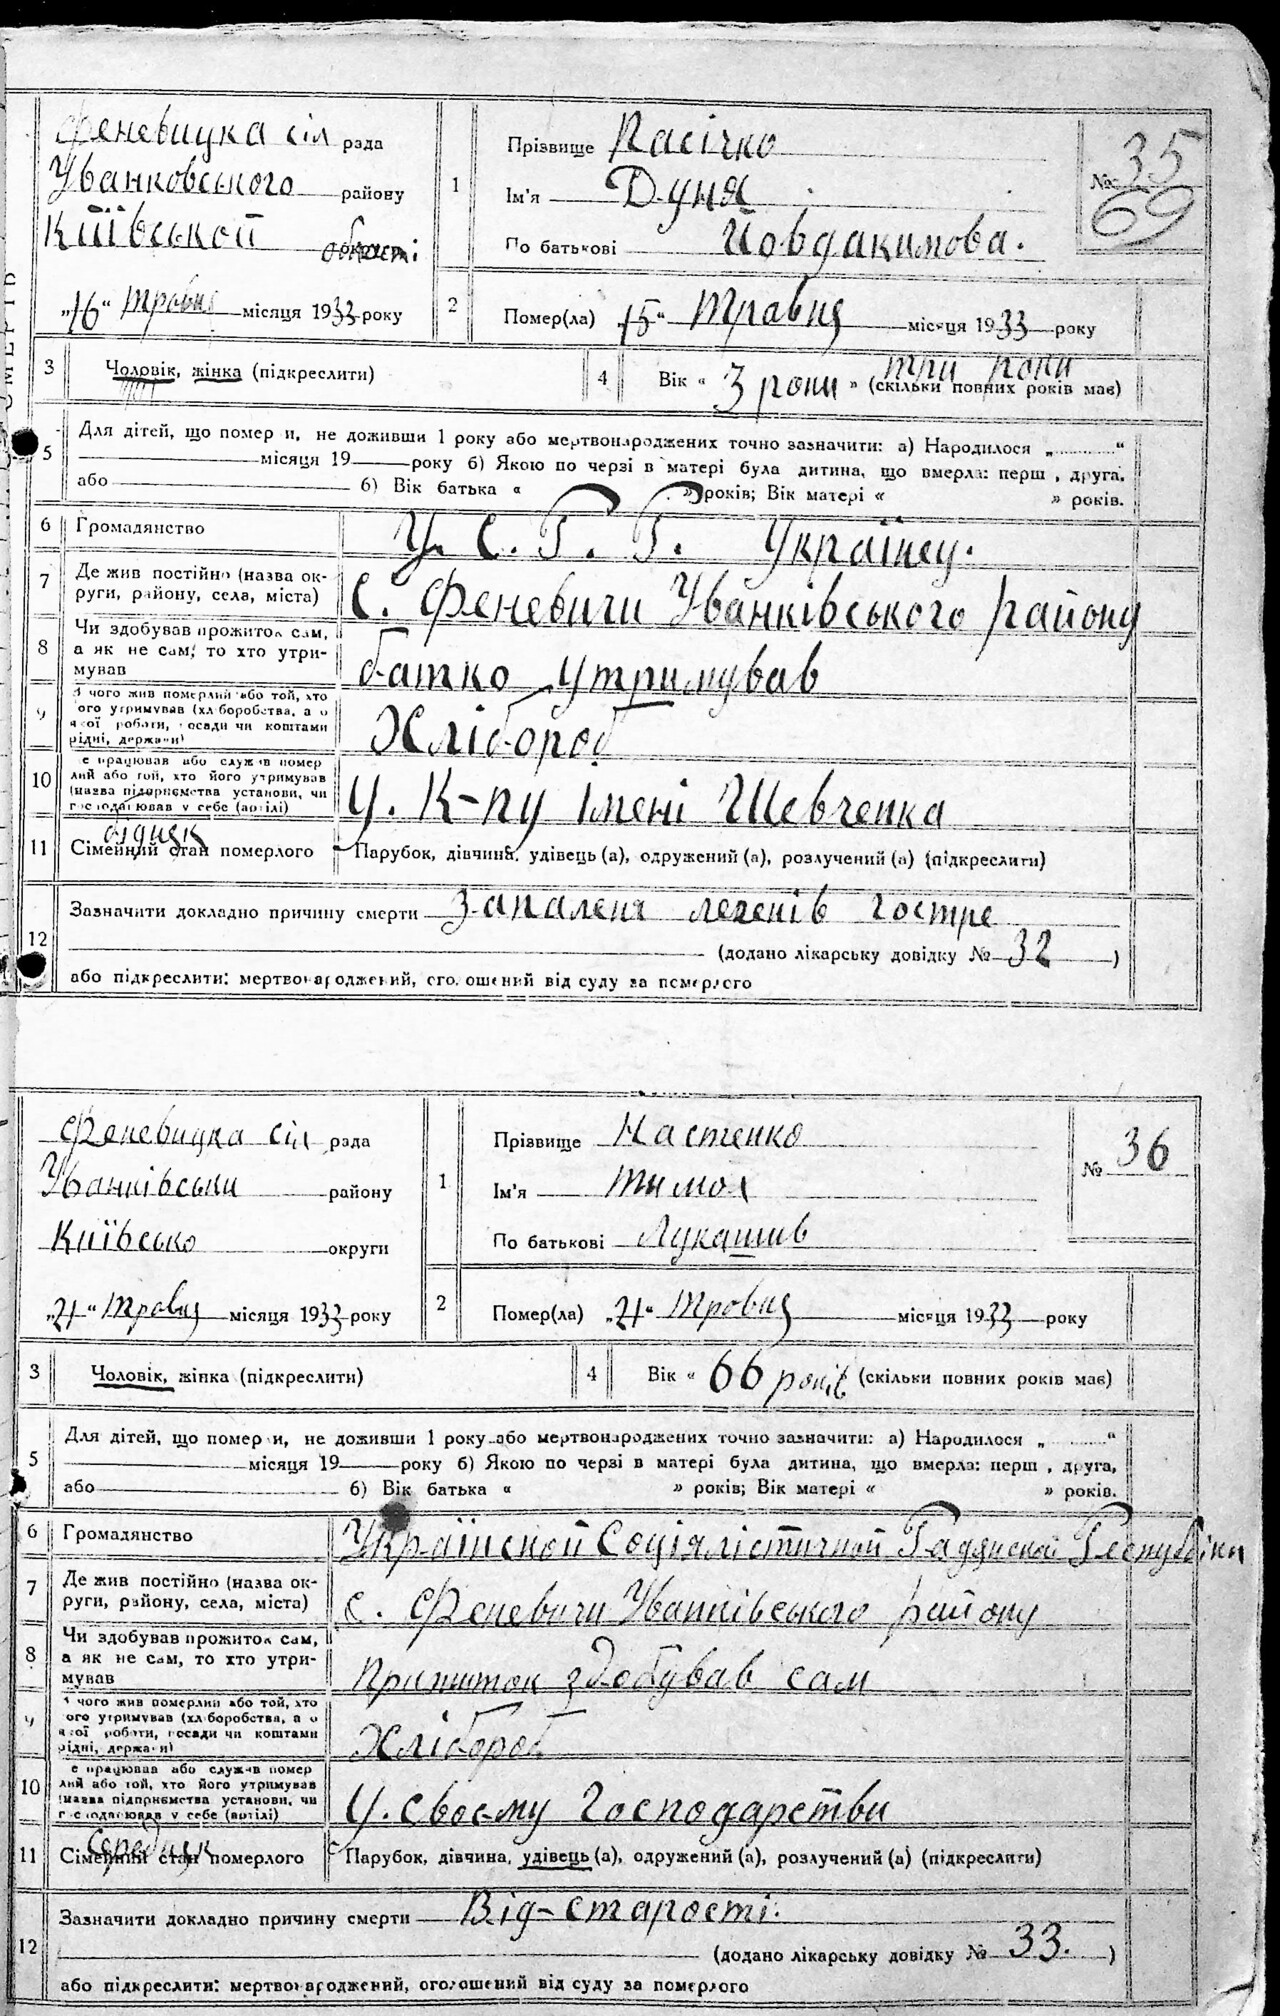 Феневицка сіл рада
Уванковського району
Київськой області
„16“ травня місяця 1933 року
1
Прізвище Пасічко
Ім'я Дуня
По батькові Йовдакимова.
№ 35
69
2
Помер(ла) „15“ Травня місяця 1933 року
3
Чоловік, жінка (підкреслити)
4
Вік « 3 роки » (скільки повних років має)
три роки
5
Для дітей, що померли, не доживши 1 року або мертвонароджених точно зазначити: а) Народилося „ “
місяця 19 року б) Якою по черзі в матері була дитина, що вмерла: перш , друга,
або б) Вік батька « » років; Вік матері « » років.
6
Громадянство У. С. Г. Г. Українсц.
7
Де жив постійно (назва ок-
руги, району, села, міста)
С. Феневичи Уванківського району
8
Чи здобував прожиток сам,
а як не сам, то хто утри-
мував
батко утримував
9
чого жив померлий або той, хто
ого утримував (хліборобства, а о
якої роботи, посади чи коштами
рідні, держави)
Хлібороб
10
е працював або служив помер
лий або той, хто його утримував
(назва підприємства установи, чи
господарював у себе (артілі)
У. К-пу Імені Шевченка
бідняк
11
Сімейний стан померлого
Парубок, дівчина, удівець (а), одружений (а), розлучений (а) (підкреслити)
12
Зазначити докладно причину смерти Запаленя легенів гостре
(додано лікарську довідку № 32 )
або підкреслити: мертвонароджений, оголошений від суду за померлого
Феневицка сіл рада
Уванківськи району
Київсько округи
„21“ Травня місяця 1933 року
1
Прізвище Настенко
Ім'я Тимох
По батькові Лукашив
№ 36
2
Помер(ла) „21“ Травня місяця 1933 року
3
Чоловік, жінка (підкреслити)
4
Вік « 66 років (скільки повних років має)
5
Для дітей, що померли, не доживши 1 року або мертвонароджених точно зазначити: а) Народилося „ “
місяця 19 року б) Якою по черзі в матері була дитина, що вмерла: перш , друга,
або б) Вік батька « » років; Вік матері « » років.
6
Громадянство Українской Соціялістичной Гадянской Гепубліки
7
Де жив постійно (назва ок-
руги, району, села, міста)
с. Феневичи Уванківського району
8
Чи здобував прожиток сам,
а як не сам, то хто утри-
мував
Прижиток здобував сам
9
чого жив померлий або той, хто
ого утримував (хліборобства, а о
якої роботи, посади чи коштами
рідні, держави)
Хлібороб
10
е працював або служив помер
лий або той, хто його утримував
(назва підприємства установи, чи
господарював у себе (артілі)
У. своєму Господарстви
Середняк
11
Сімейний стан померлого
Парубок, дівчина, удівець (а), одружений (а), розлучений (а) (підкреслити)
12
Зазначити докладно причину смерти Від-старости.
(додано лікарську довідку № 33. )
або підкреслити: мертвонароджений, оголошений від суду за померлого